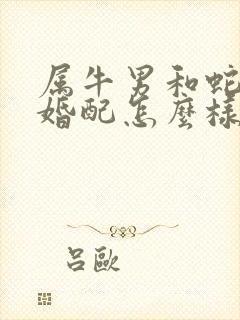 属牛男和蛇
婚配怎麽樣
吕歐